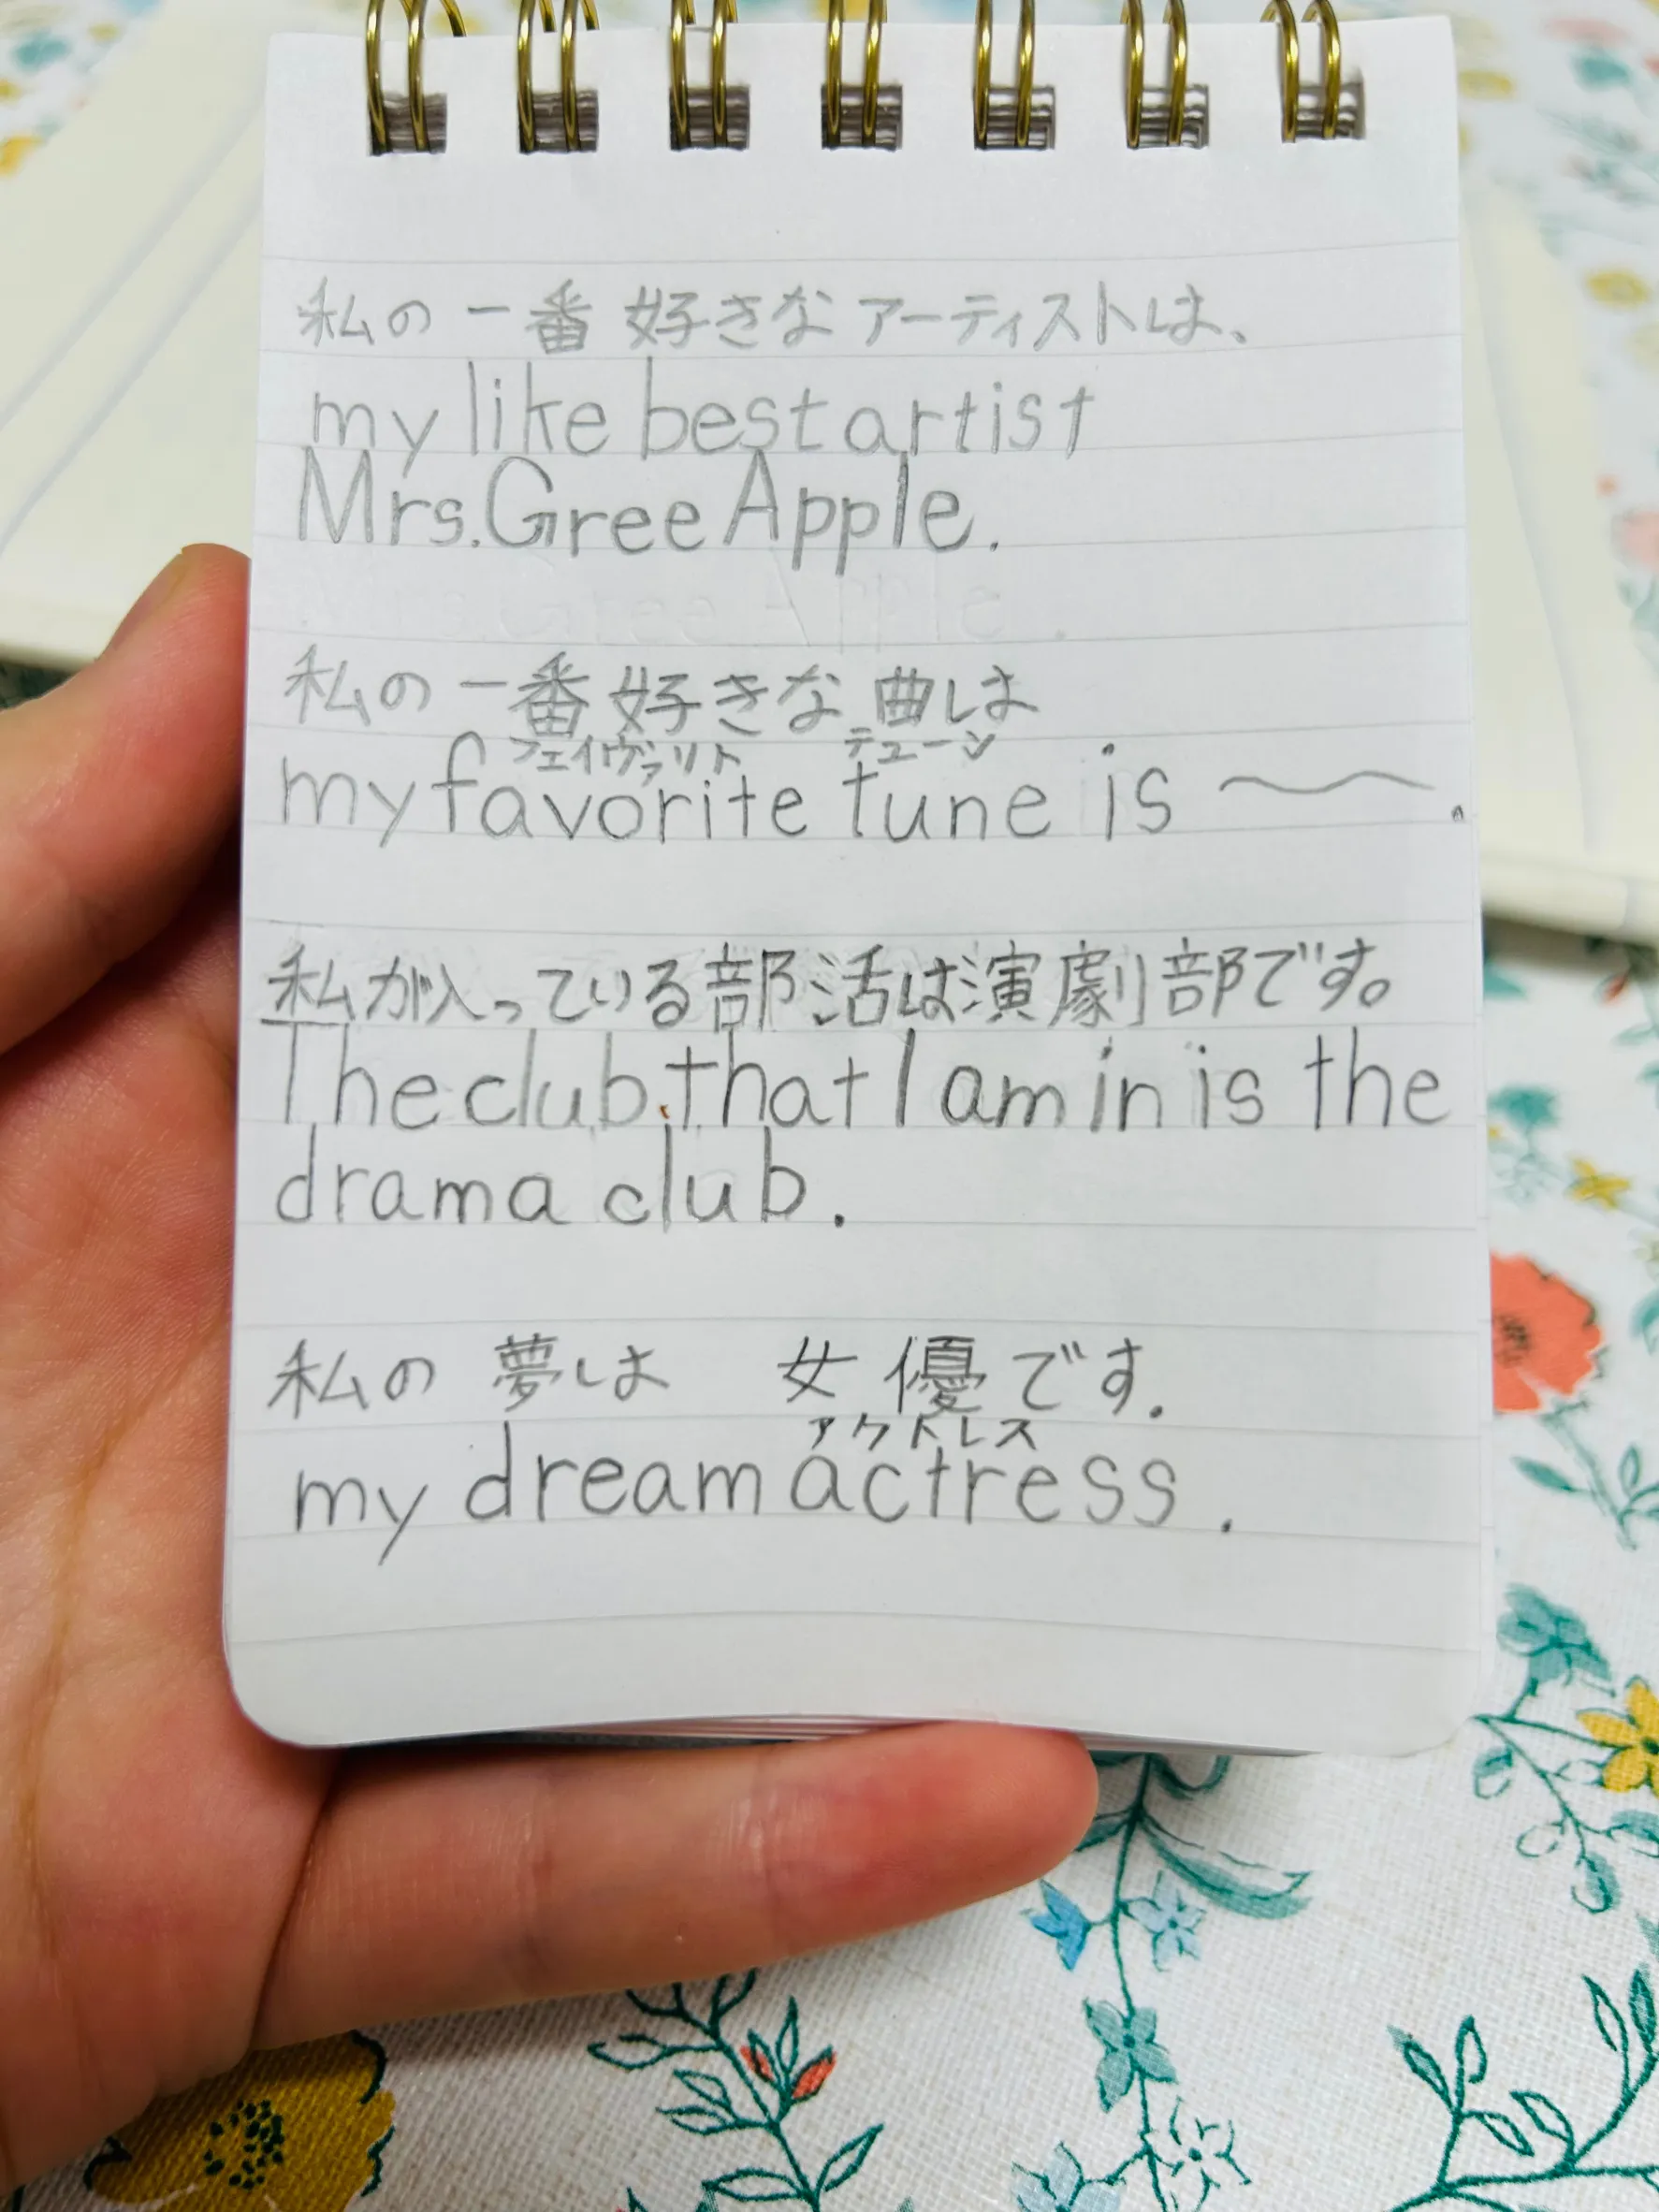 私の一番好きなアーティストは、
my like best artist
Mrs.Gree Apple.
私の一番好きな曲は
フェイヴァリト テューン
my favorite tune is 〜.
私が入っている部活は演劇部です。
The club that I am in is the
drama club.
私の夢は 女優です.
アクトレス
my dream actress.